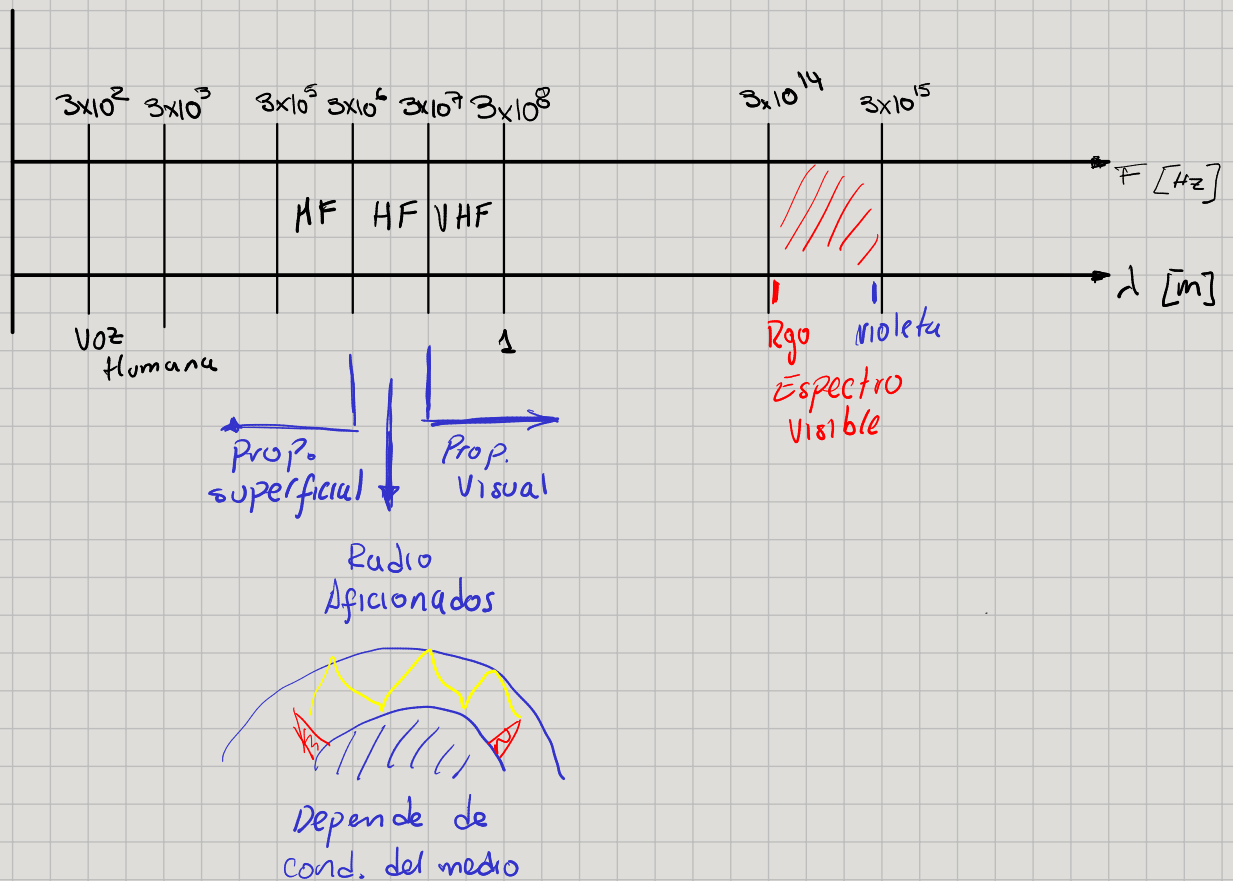 3x10² 3x10³ 3x10⁵ 3x10⁶ 3x10⁷ 3x10⁸ 3x10¹⁴ 3x10¹⁵
F [Hz]
MF HF VHF
λ [m]
Voz
Humana
1
Rgo violeta
Espectro
Visible
Prop.
superficial
Prop.
Visual
Radio
Aficionados
Depende de
cond. del medio